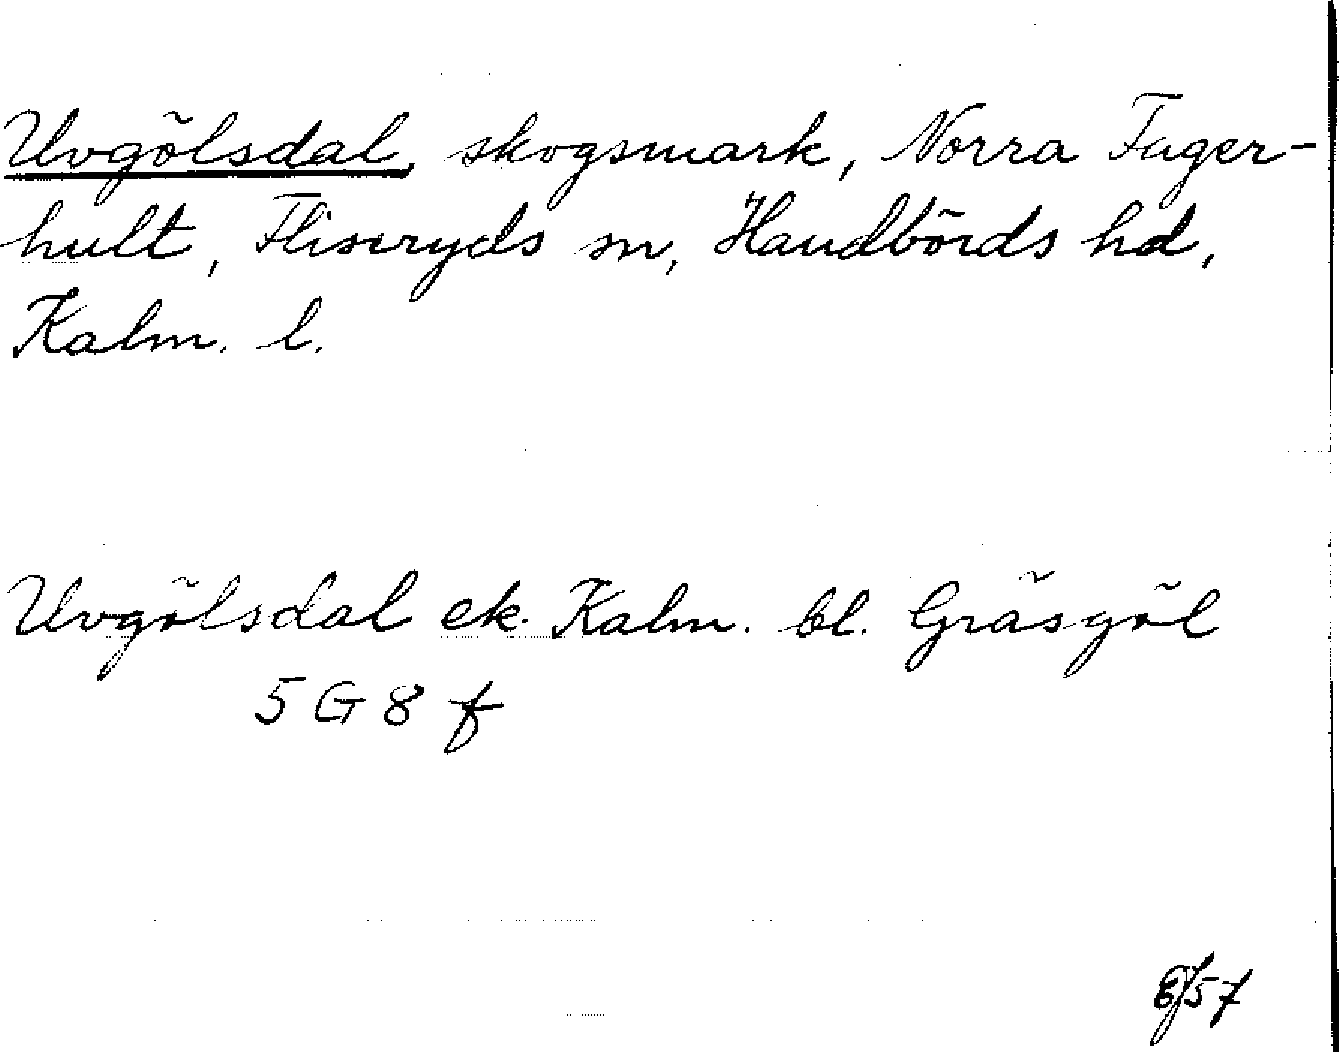 Uvgölsdal, skogsmark, Norra Fager-
hult, Fliseryds sn, Handbörds hd,
Kalm. l.
Uvgölsdal ek. Kalm. bl. Gräsgöl
5 G 8 f
/57